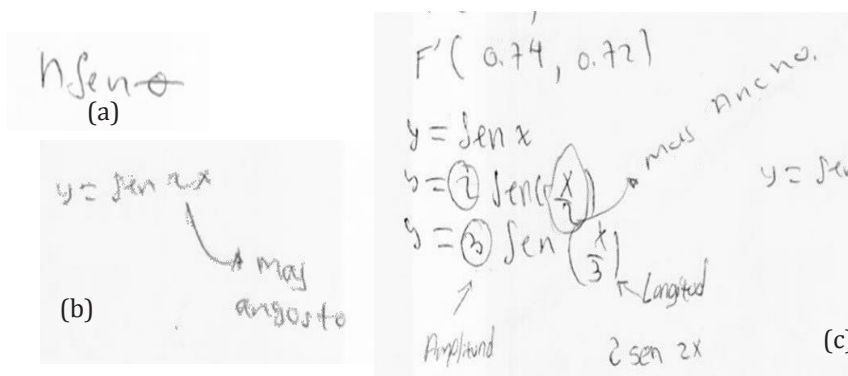 n sen θ
(a)
y = sen 2x
mas
angosto
(b)
F'( 0.74, 0.72)
mas Ancho.
y = sen x
y = 2 sen(x/2)
y = 3 sen (x/3)
Longitud
Amplitund
2 sen 2x
y = sen
(c)